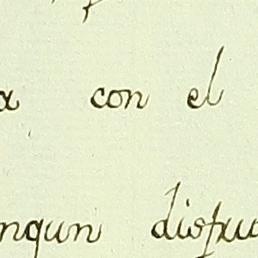 a con el
ngun dispu